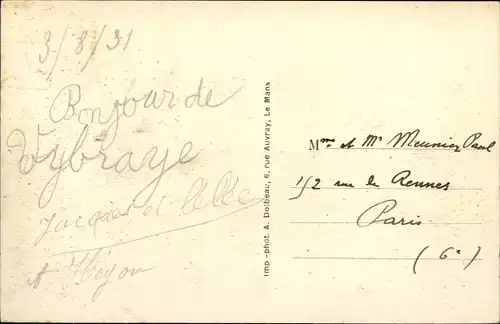 3/8/31
Bonjour de
Vybraye
Jacques et
Imp.-phot. A. Dolbeau, 6, rue Auvray, Le Mans
Mme et Mr Meunier Paul
112 rue de Rennes
Paris
(6e)